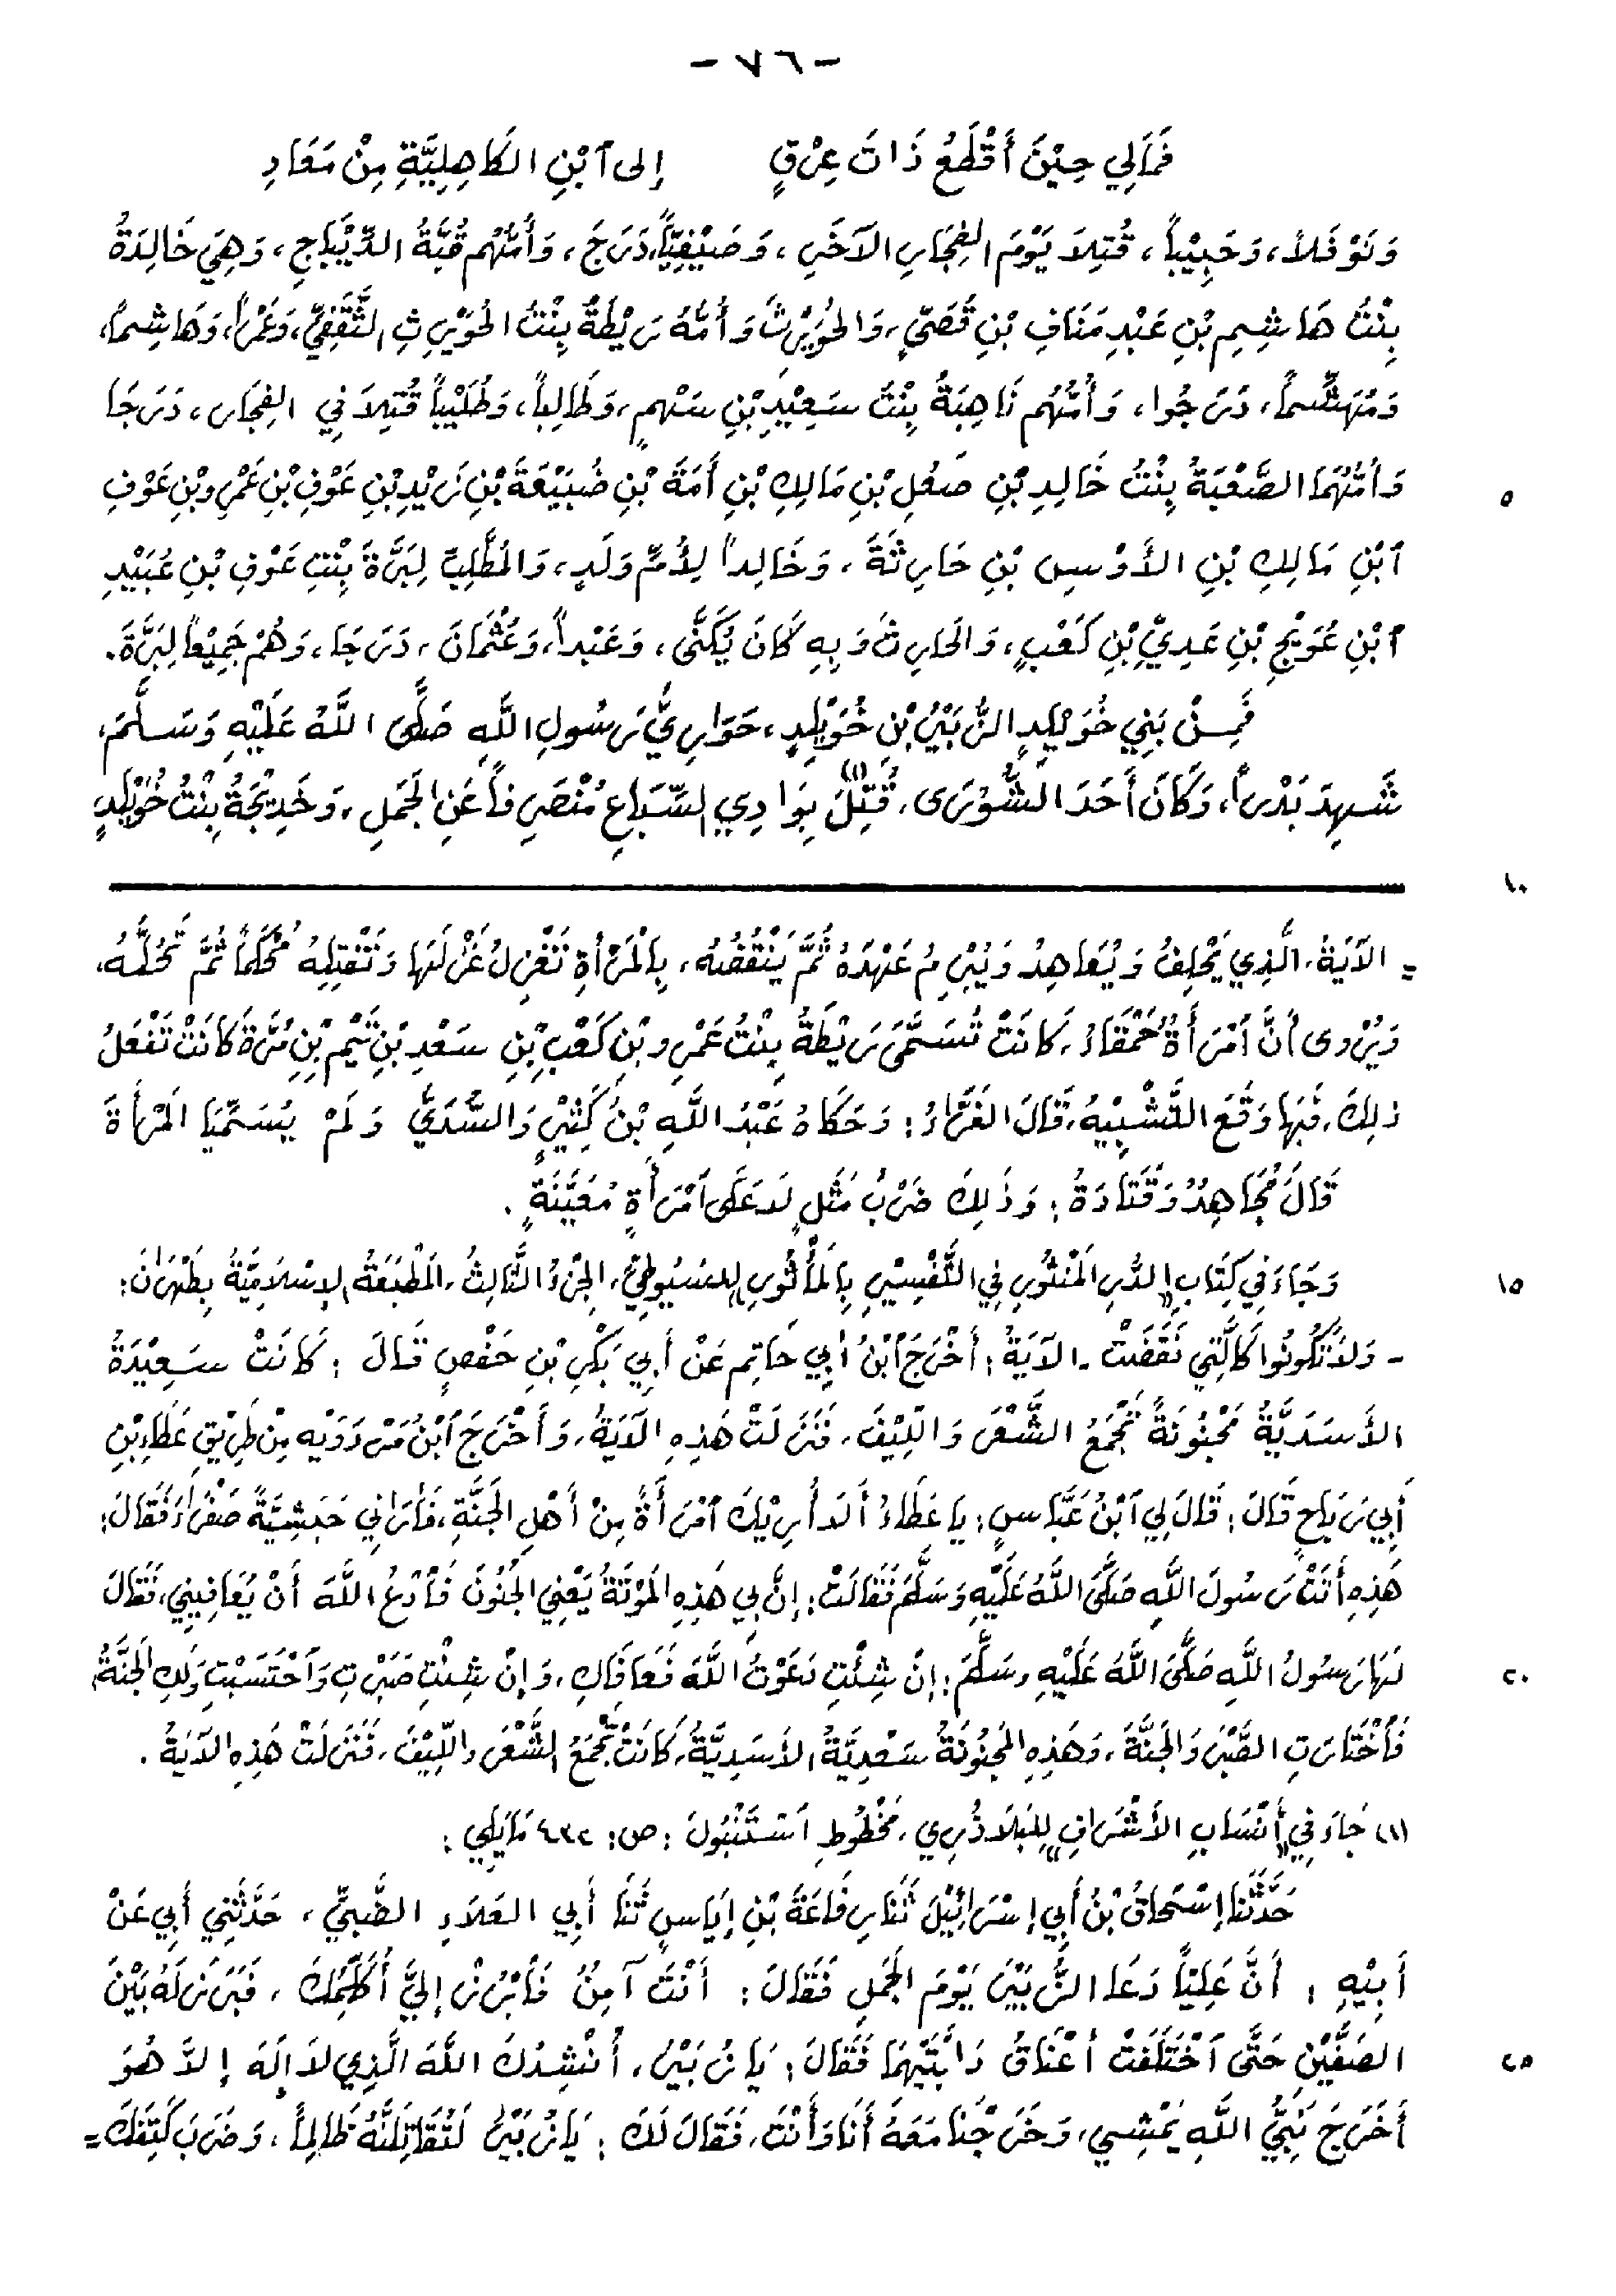 - ٧٦ -
فَمَالِي حِيْنَ أَقْطَعُ ذَاتَ عِرْقٍ إِلى ٱبْنِ الكَاهِلِيَّةِ مِنْ مَعَادِ
وَنَوْفَلاً، وَحَبِيْباً، قُتِلاَ يَوْمَ الفِجَارِ الآخَرِ، وَصَيْفِيّاً، دَرَجَ، وَأُمُّهُم قُبَّةُ الدِّيْبَاجِ، وَهِيَ خَالِدَةُ
بِنْتُ هَاشِمِ بْنِ عَبْدِ مَنَافِ بْنِ قُصَيٍّ، وَالحُوَيْرِثَ وَأُمُّهُ رَيْطَةُ بِنْتُ الحُوَيْرِثِ الثَّقَفِيِّ، وَعَمْراً، وَهَاشِماً،
وَمُهَشِّماً، دَرَجُوا، وَأُمُّهُم نَاهِبَةُ بِنْتُ سَعِيْدِ بْنِ سَهْمٍ، وَطَالِباً، وَطُلَيْباً قُتِلاَ فِي الفِجَارِ، دَرَجَا
وَأُمُّهُمَا الصَّعْبَةُ بِنْتُ خَالِدِ بْنِ صَعْلِ بْنِ مَالِكِ بْنِ أَمَةَ بْنِ ضُبَيْعَةَ بْنِ زَيْدِ بْنِ عَوْفِ بْنِ عَمْرِو بْنِ عَوْفِ
٥
ٱبْنِ مَالِكِ بْنِ الأَوْسِ بْنِ حَارِثَةَ، وَخَالِداً لِأُمِّ وَلَدٍ، وَالمُطَّلِبَ لِبَرَّةَ بِنْتِ عَوْفِ بْنِ عُبَيْدِ
ٱبْنِ عُوَيْجِ بْنِ عَدِيِّ بْنِ كَعْبٍ، وَالحَارِثَ وَبِهِ كَانَ يُكَنَّى، وَعَبْداً، وَعُثْمَانَ، دَرَجَا، وَهُمْ جَمِيْعاً لِبَرَّةَ.
فَمِنْ بَنِي خُوَيْلِدٍ الزُّبَيْرُ بْنُ خُوَيْلِدٍ، حَوَارِيُّ رَسُولِ اللَّهِ صَلَّى اللَّهُ عَلَيْهِ وَسَلَّمَ،
شَهِدَ بَدْراً، وَكَانَ أَحَدَ الشُّوْرَى، قُتِلَ (١) بِوَادِي السِّبَاعِ مُنْصَرِفاً عَنِ الجَمَلِ، وَخَدِيْجَةُ بِنْتُ خُوَيْلِدٍ
١٠
= الآيَةُ، الَّذِي يَحْلِفُ وَيُعَاهِدُ وَيُبْرِمُ عَهْدَهُ ثُمَّ يَنْقُضُهُ، بِالمَرْأَةِ تَغْزِلُ غَزْلَهَا وَتَفْتِلُهُ مُحْكَماً ثُمَّ تَحُلُّهُ،
وَيُرْوى أَنَّ ٱمْرَأَةً حَمْقَاءَ، كَانَتْ تُسَمَّى رَيْطَةُ بِنْتُ عَمْرِو بْنِ كَعْبِ بْنِ سَعْدِ بْنِ تَيْمِ بْنِ مُرَّةَ كَانَتْ تَفْعَلُ
ذلِكَ، فَبِهَا وَقَعَ التَّشْبِيْهُ، قَالَ الفَرَّاءُ: وَحَكَاهُ عَبْدُ اللَّهِ بْنُ كَثِيْرٍ وَالسُّدِّيُّ وَلَمْ يُسَمِّيَا المَرْأَةَ
قَالَ مُجَاهِدُ وَقَتَادَةُ: وَذَلِكَ ضَرْبُ مَثَلٍ لاَ عَلَى ٱمْرَأَةٍ مُعَيَّنَةٍ.
وَجَاءَ فِي كِتَابِ «الدُّرِ المَنْثُورِ فِي التَّفْسِيْرِ بِالمَأْثُورِ» لِلسُيُوطِيِّ، الجِزْءُ الثَّالِثُ، المَطْبَعَةُ الإِسْلاَمِيَّةُ بِطَهْرَانَ:
١٥
- وَلاَ تَكُونُوا كَالَّتِي نَقَضَتْ - الآيَةُ: أَخْرَجَ ٱبْنُ أَبِي حَاتِمٍ عَنْ أَبِي بَكْرِ بْنِ حَفْصٍ قَالَ: كَانَتْ سَعِيْدَةُ
الأَسَدِيَّةُ مَجْنُونَةً تَجْمَعُ الشَّعْرَ وَاللِّيْفَ، فَنَزَلَتْ هَذِهِ الآيَةُ، وَأَخْرَجَ ٱبْنُ مَرْدَوَيْه مِنْ طَرِيْقِ عَطَاءِ بْنِ
أَبِي رَبَاحٍ قَالَ: قَالَ لِي ٱبْنُ عَبَّاسٍ: يَا عَطَاءُ أَلاَ أُرِيْكَ ٱمْرَأَةً مِنْ أَهْلِ الجَنَّةِ، فَأَرَانِي حَبَشِيَّةً صَفْرَاءَ فَقَالَ:
هَذِهِ أَتَتْ رَسُولَ اللَّهِ صَلَّى اللَّهُ عَلَيْهِ وَسَلَّمَ فَقَالَتْ: إِنَّ بِي هَذِهِ المَوْتَةُ يَعْنِي الجُنُونَ فَٱدْعُ اللَّهَ أَنْ يُعَافِينِي، فَقَالَ
لَهَا رَسُولُ اللَّهِ صَلَّى اللَّهُ عَلَيْهِ وسَلَّمَ: إِنْ شِئْتِ دَعَوْتُ اللَّهَ فَعَافَاكِ، وَإِنْ شِئْتِ صَبَرْتِ وَٱحْتَسَبْتِ وَلَكِ الجَنَّةُ،
٢٠
فَٱخْتَارَتِ الصَّبْرَ وَالجَنَّةَ، وَهَذِهِ المَجْنُونَةُ سَعْدِيَّةُ الأَسَدِيَّةُ، كَانَتْ تَجْمَعُ الشَّعْرَ واللِّيْفَ، فَنَزَلَتْ هَذِهِ الآيَةُ.
(١) جَاءَ فِي «أَنْسَابِ الأَشْرَافِ» لِلبَلَاذُرِي، مَخْطُوطِ ٱسْتَنْبُولَ: ص: ٤٣٢ مَايَلِي:
حَدَّثَنَا إِسْحَاقُ بْنُ أَبِي إِسْرَائِيْلَ ثَنَا رِفَاعَةُ بْنِ إِيَاسٍ ثَنَا أَبِي العَلَاءِ الضَّبِيِّ، حَدَّثَنِي أَبِي عَنْ
أَبِيْهِ: أَنَّ عَلِيّاً دَعَا الزُّبَيْرَ يَوْمَ الجَمَلِ فَقَالَ: أَنْتَ آمِنٌ فَٱبْرُزْ إِلَيَّ أُكَلِّمْكَ، فَبَرَزَ لَهُ بَيْنَ
الصَفَّيْنِ حَتَّى ٱخْتَلَفَتْ أَعْنَاقُ دَابَّتَيْهِمَا فَقَالَ: يَا زُبَيْرُ، أُنْشِدُكَ اللَّهَ الَّذِي لاَ إِلَهَ إِلاَّ هُوَ
٢٥
أَخَرَجَ نَبِيُّ اللَّهِ يَمْشِي، وَخَرَجْنَا مَعَهُ أَنَا وَأَنْتَ، فَقَالَ لَكَ: يَا زُبَيْرُ لَتُقَاتِلَنَّهُ ظَالِماً، وَضَرَبَ كَتِفَكَ =